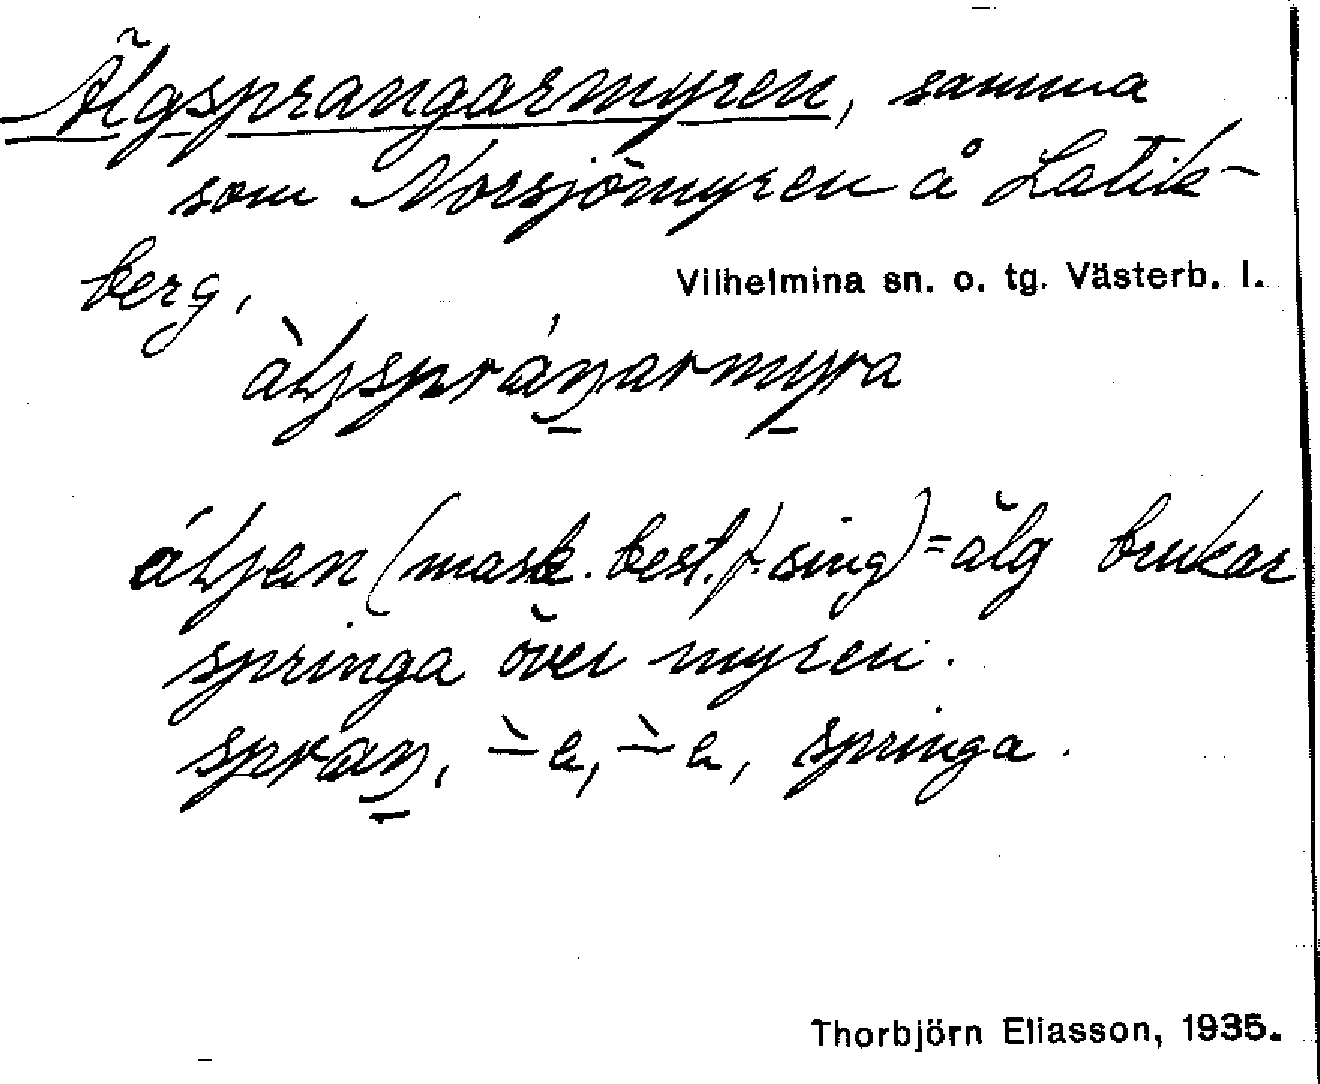 Älgsprangarmyren, samma
som Norsjömyren å Latik-
berg,
Vilhelmina sn. o. tg. Västerb. l.
àljspráŋarmyra
áljen (mask. best. f. sing) = älg brukar
springa över myren.
spraŋ, -̀ a, -̀ a, springa.
Thorbjörn Eliasson, 1935.